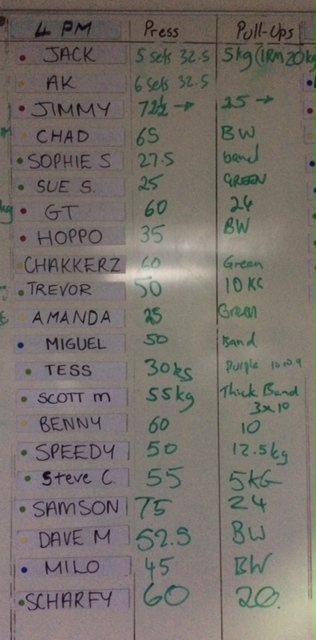 4 PM Press Pull-Ups
JACK 5 sets 32.5 5kg (1RM 20kg
AK 6 sets 32.5
JIMMY 72½ → 25 →
CHAD 65 BW
SOPHIE S 27.5 band
SUE S. 25 GREEN
GT 60 24
HOPPO 35 BW
CHAKKERZ 60 Green
TREVOR 50 10 KG
AMANDA 25 Green
MIGUEL 50 Band
TESS 30kg Purple 10 10 9
SCOTT m 55kg Thick Band
3x10
BENNY 60 10
SPEEDY 50 12.5kg
Steve C. 55 5KG
SAMSON 75 24
DAVE M 52.5 BW
MILO 45 BW
SCHARFY 60 20.